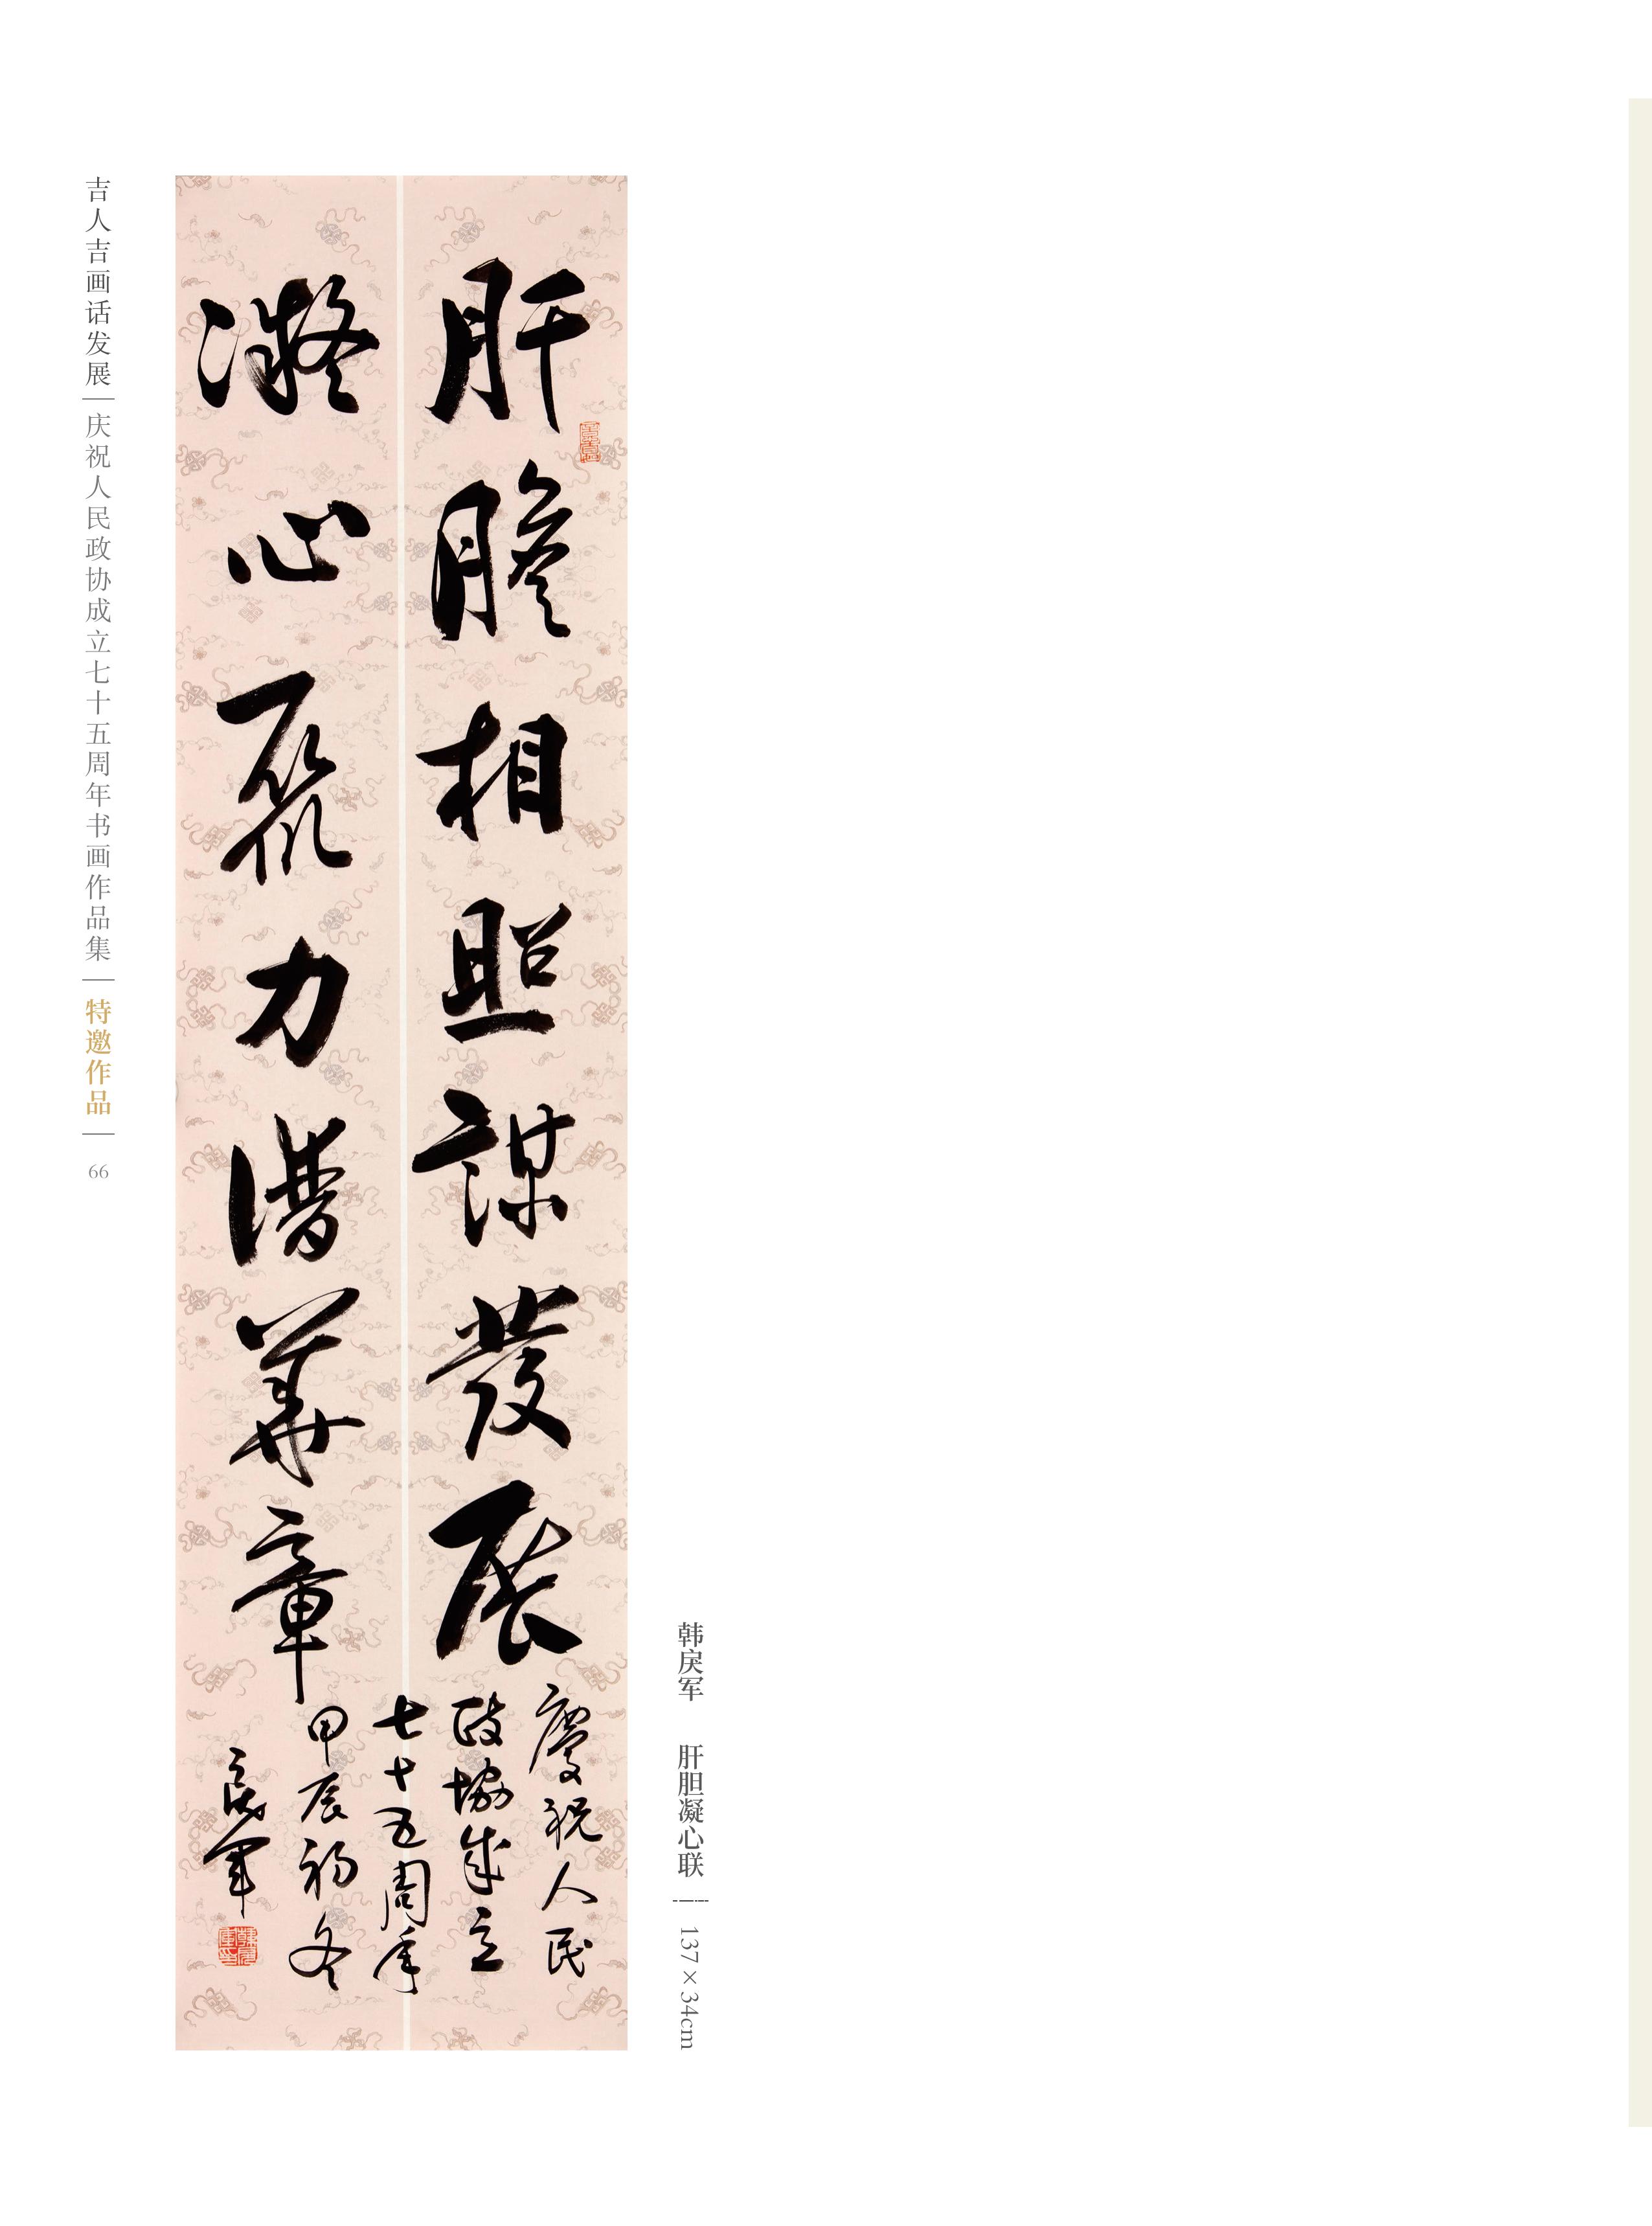 吉人吉画话发展
庆祝人民政协成立七十五周年书画作品集
特邀作品
66
肝膽相照謀發展
凝心聚力譜華章
慶祝人民
政協成立
七十五周年
甲辰初冬
戾軍
韩戾军 肝胆凝心联
137×34cm